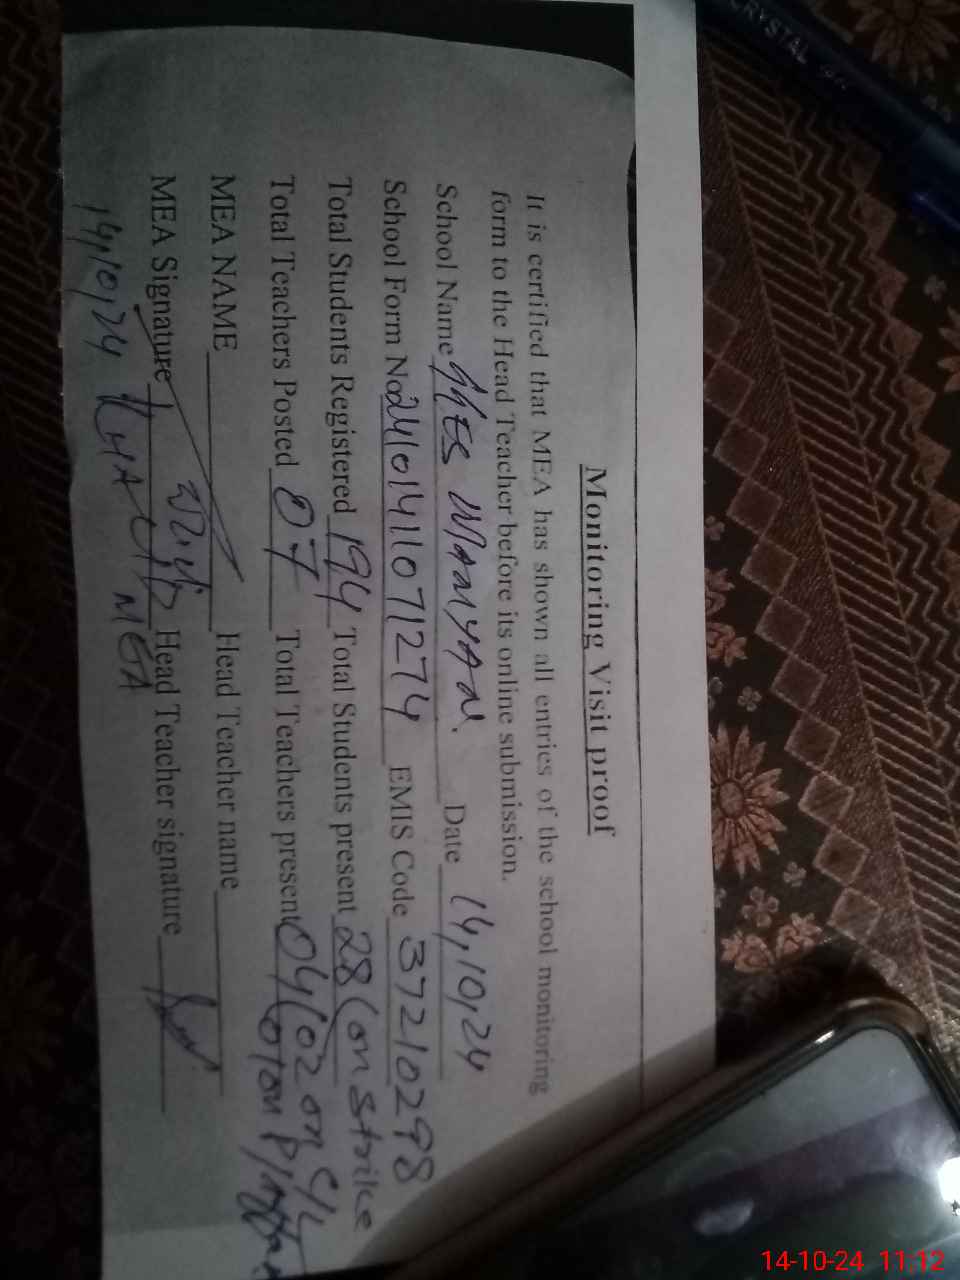 Monitoring Visit proof
It is certified that MEA has shown all entries of the school monitoring
form to the Head Teacher before its online submission.
School Name GGES Date 14,10,24
School Form No 24101411071274 EMIS Code 37210298
Total Students Registered 194 Total Students present 28 (on strike
Total Teachers Posted 07 Total Teachers present 04(02 on C/L
01 on
MEA NAME Head Teacher name
MEA Signature Head Teacher signature
14,10,24 MEA
CRYSTAL
14-10-24 11:12